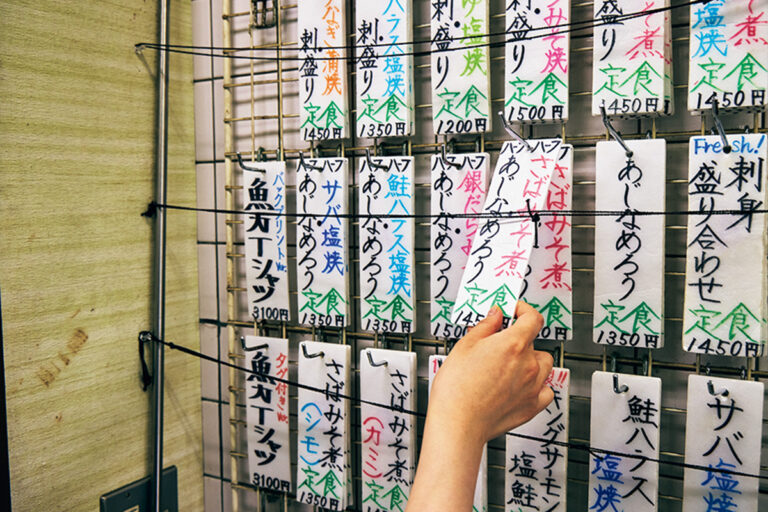 なぎ蒲焼
刺・盛り
定食
1450円
ハラス塩焼
刺・盛り
定食
1350円
塩焼
刺・盛り
定食
1200円
煮
刺・盛り
定食
1500円
煮
盛り
定食
1450円
煮
塩焼
定食
1450円
バックプリントVer.
魚力Tシャツ
3100円
ハーフハーフ
サバ塩焼
あじなめろう
定食
1350円
ハーフハーフ
鮭ハラス塩焼
あじなめろう
定食
1350円
ハーフハーフ
銀だらみ
あじなめろう
定食
ハーフハーフ
さばみそ煮
あじなめろう
定食
さばみそ煮
定食
あじなめろう
定食
1350円
Fresh!
刺身
盛り合わせ
定食
1450円
タグ付きVer.
魚力Tシャツ
3100円
さばみそ煮
(シモ)
定食
1350
さばみそ煮
(カミ)
定食
ングサーモン
塩鮭
鮭ハラス
塩焼
サバ
塩焼